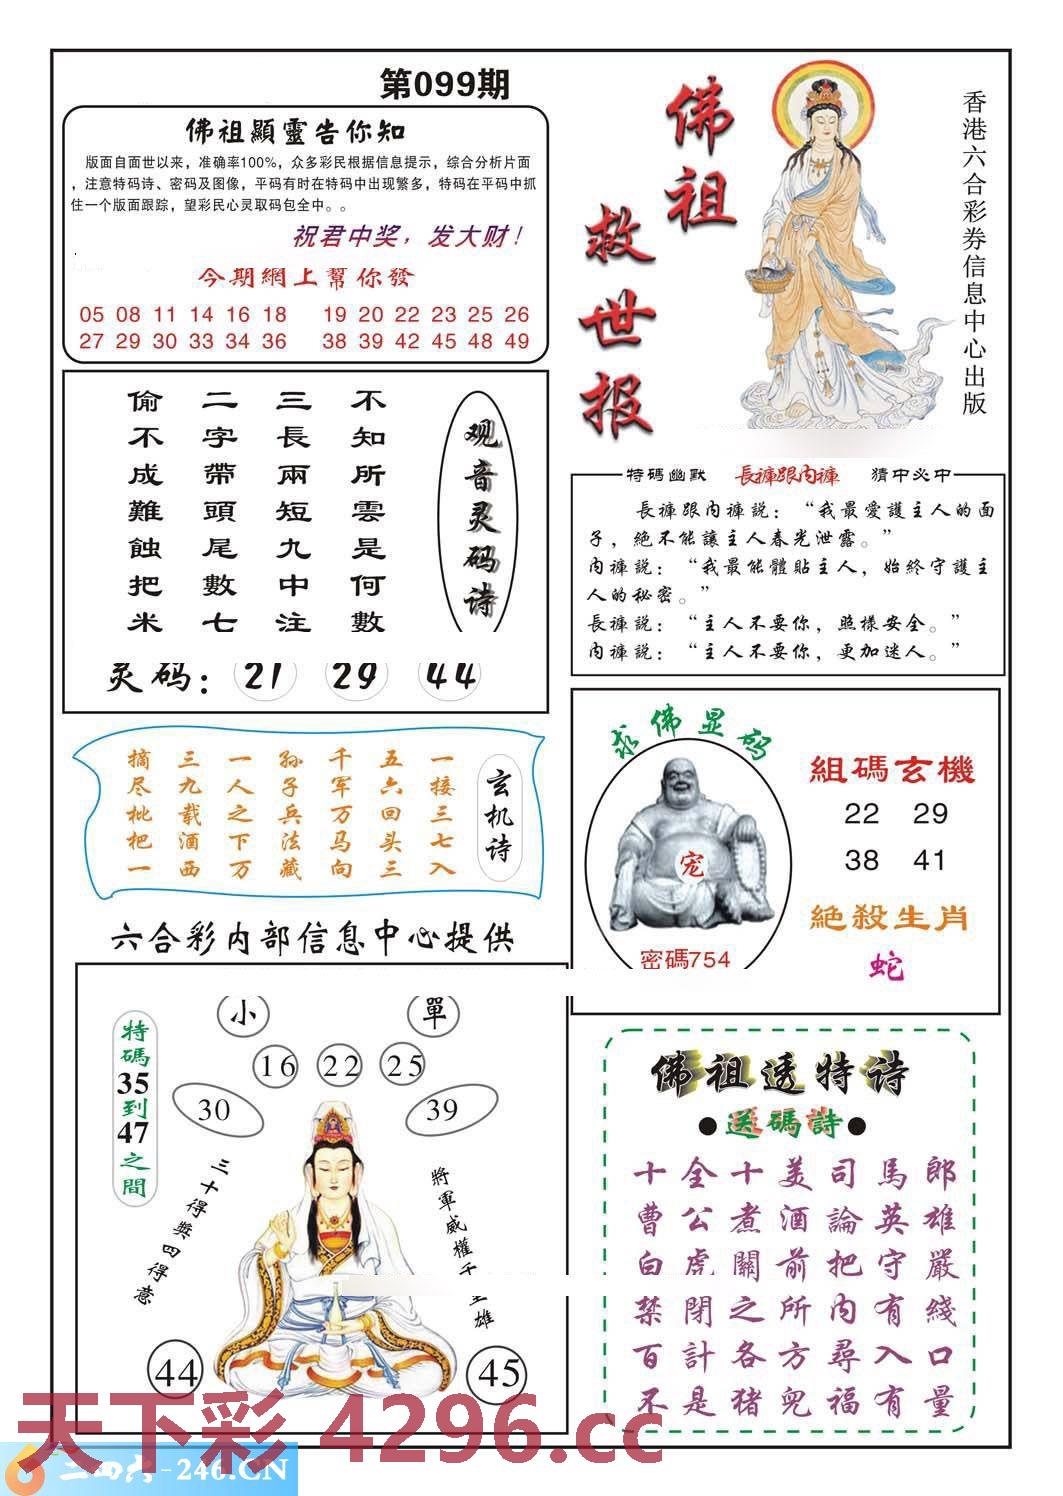 第099期
佛祖顯靈告你知
版面自面世以来，准确率100%，众多彩民根据信息提示，综合分析片面
，注意特码诗、密码及图像，平码有时在特码中出现繁多，特码在平码中抓
住一个版面跟踪，望彩民心灵取码包全中。。
祝君中奖，发大财！
今期網上幫你發
05 08 11 14 16 18 19 20 22 23 25 26
27 29 30 33 34 36 38 39 42 45 48 49
佛祖
救世报
香港六合彩券信息中心出版
观音灵码诗
不知所雲是何數
三長兩短九中注
二字帶頭尾數七
偷不成難蝕把米
灵码：21 29 44
特碼幽默 長褲跟内褲 猜中必中
長褲跟内褲説：“我最愛護主人的面
子，絶不能讓主人春光泄露。”
内褲説：“我最能體貼主人，始終守護主
人的秘密。”
長褲説：“主人不要你，照樣安全。”
内褲説：“主人不要你，更加迷人。”
玄机诗
一接三七入
五六回头三
千军万马向
孙子兵法藏
一人之下万
三九载酒西
摘尽枇杷一
求佛显码
宠
密碼754
組碼玄機
22 29
38 41
絕殺生肖
蛇
六合彩内部信息中心提供
小 單
16 22 25
30 39
特碼35到47之間
三十得獎四得意
將軍威權千
雄
44 45
佛祖透特诗
●送碼詩●
十全十美司馬郎
曹公煮酒論英雄
白虎關前把守嚴
禁閉之所内有綫
百計各方尋入口
不是猪兜福有量
天下彩 4296.cc
二四六-246.CN